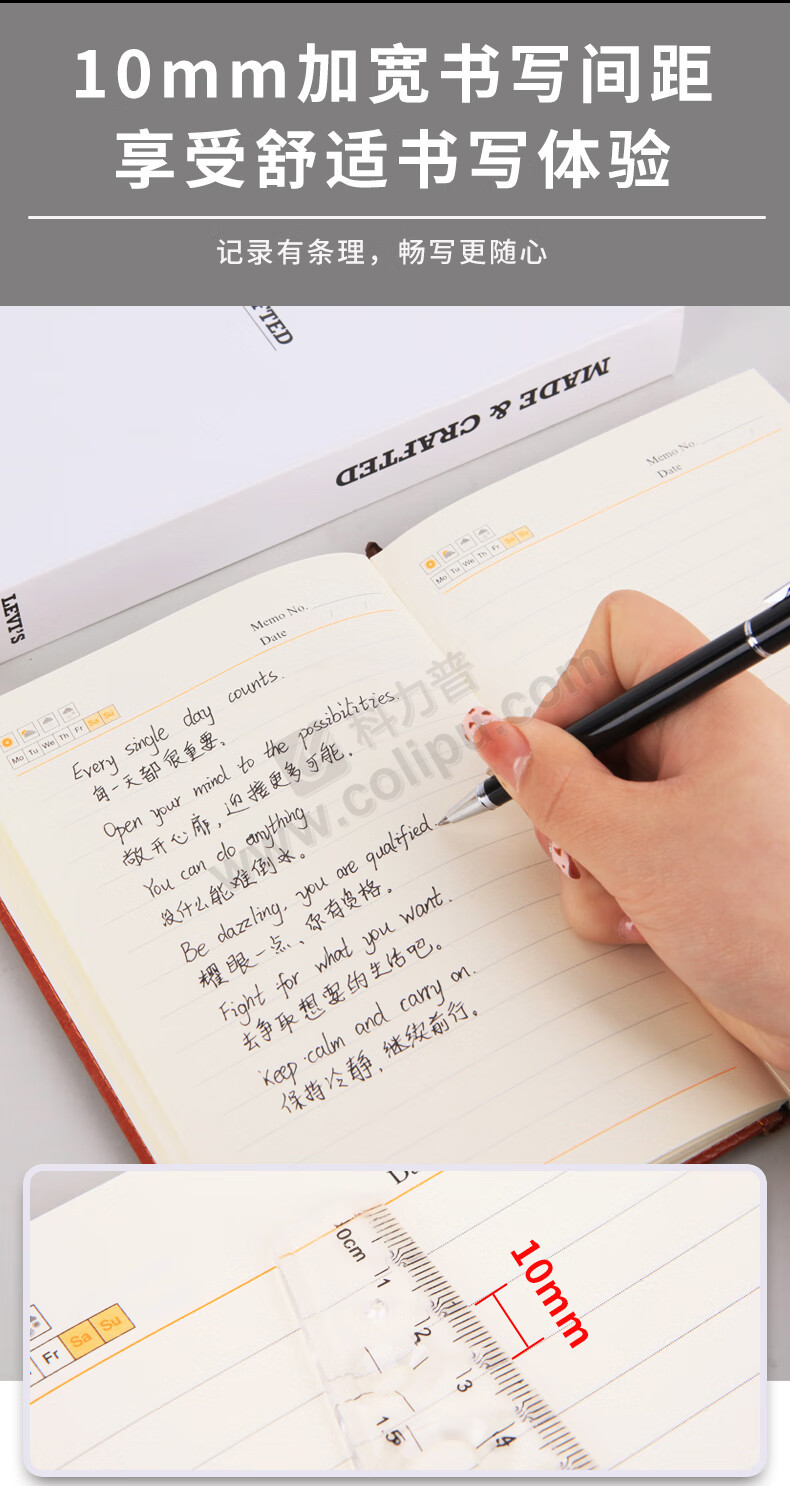 10mm加宽书写间距
享受舒适书写体验
记录有条理，畅写更随心
FTED
MADE & CRAFTED
LEVI'S
Memo No.
Date
Mo Tu We Th Fr Sa Su
Memo No.
Date
Mo Tu We Th Fr Sa Su
Every single day counts.
每一天都很重要。
Open your mind to the possibilities.
敞开心扉，迎接更多可能。
You can do anything
没什么能难倒你。
Be dazzling, you are qualified.
耀眼一点，你有资格。
Fight for what you want.
去争取想要的生活吧。
Keep calm and carry on.
保持冷静，继续前行。
科力普
www.colipu.com
Fr Sa Su
0cm 1 2 3 4
1.5
10mm